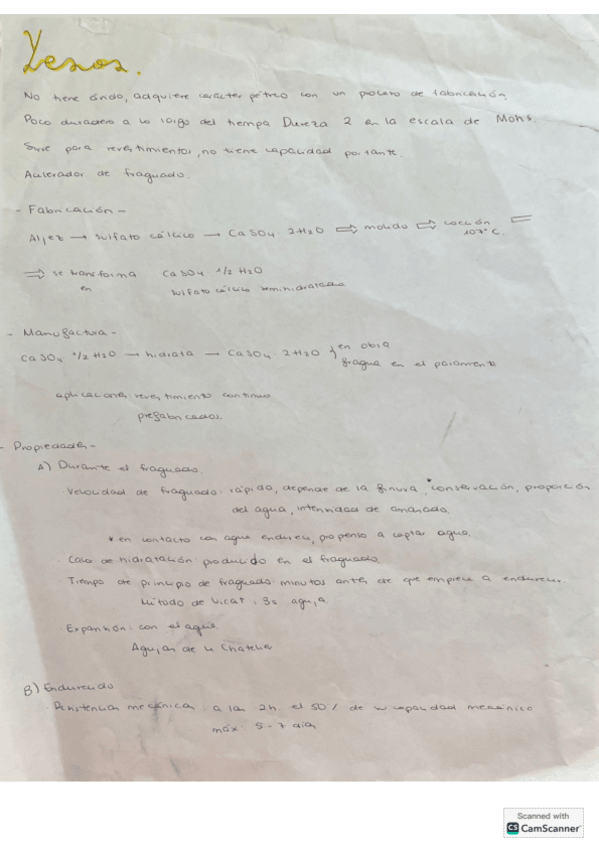 Yesos.
No tiene árido, adquiere carácter pétreo con un proceso de fabricación.
Poco duradero a lo largo del tiempo. Dureza 2 en la escala de Mohs.
Sirve para revestimientos, no tiene capacidad portante.
Acelerador de fraguado.
- Fabricación -
Aljez → sulfato cálcico → CaSO4 · 2H2O ⇒ molido ⇒ cocción =
107°C.
⇒ se transforma CaSO4 1/2 H2O
en sulfato cálcico semihidratado
- Manufactura -
CaSO4 1/2 H2O → hidrata → CaSO4 · 2H2O } en obra
fragua en el paramento
aplicaciones: revestimiento continuo
prefabricados.
- Propiedades -
A) Durante el fraguado.
· Velocidad de fraguado: rápido, depende de la finura, *conservación, proporción
del agua, intensidad de amasado.
* en contacto con agua endurece, propenso a captar agua.
· Calor de hidratación: producido en el fraguado.
· Tiempo de principio de fraguado: minutos antes de que empiece a endurecer.
Método de Vicat: aguja.
· Expansión: con el agua.
Agujas de Le Chatelier
B) Endurecido
· Resistencia mecánica: a las 2h. el 50% de su capacidad mecánica
máx. 5-7 días
Scanned with
CS CamScanner